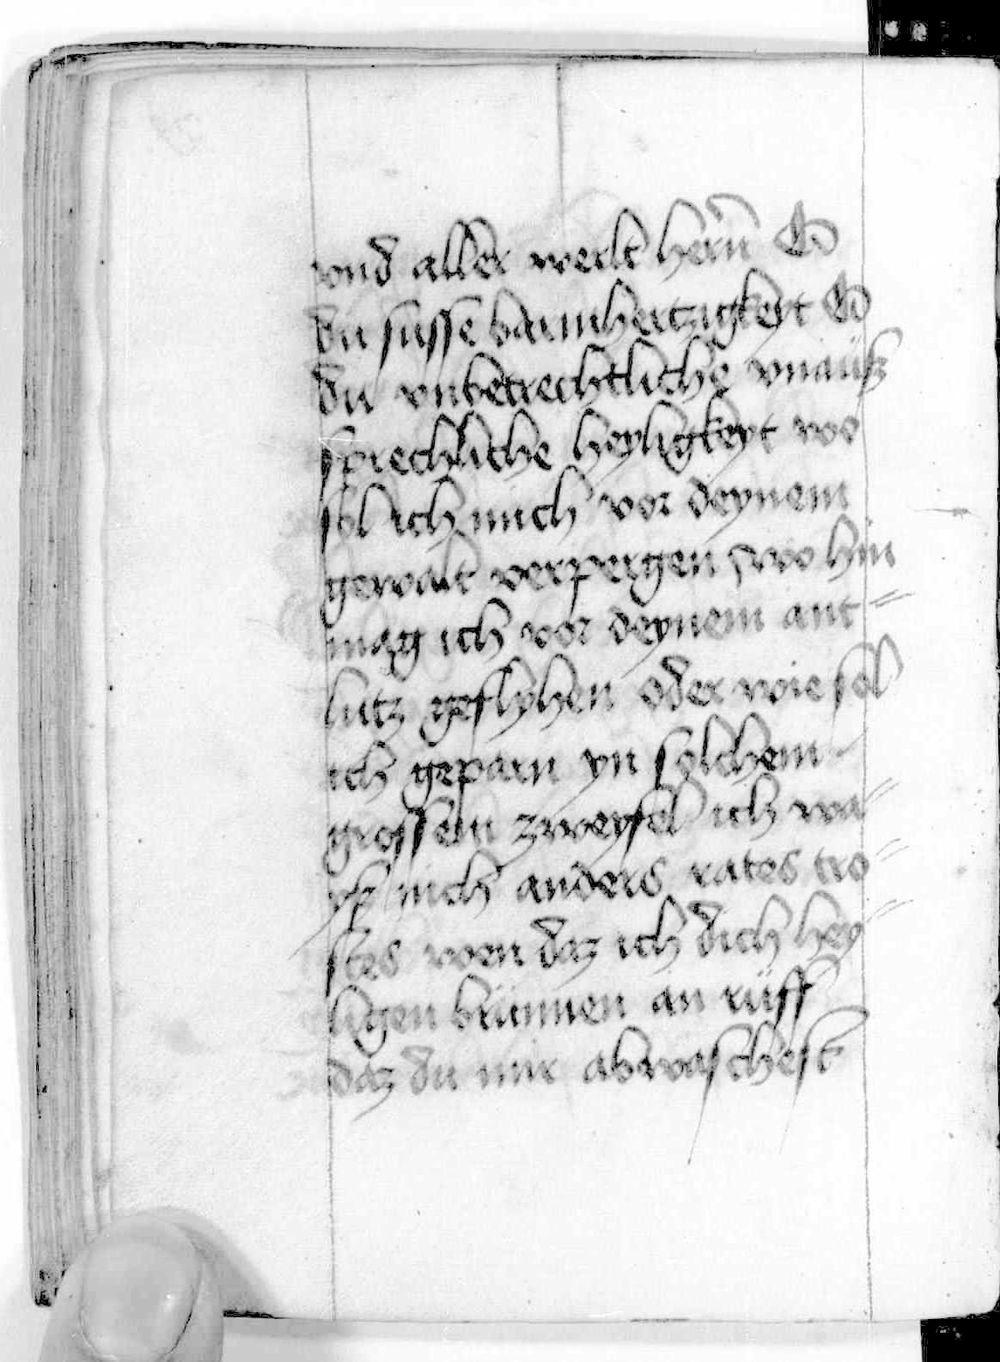 vnd aller werlt herñ O
du susse barmhertzigkeyt O
du vnbetrechtliche vnauß
sprechliche heyligkeyt wo
sol ich mich vor deynem
gewalt verpergen / wo hin
mag ich vor deynem ant=
lutz geflyhen oder wie sol
ich geparn yn solchem
grossem zweyfel ich wa=
yß nich anders rates tro=
stes wen daz ich dich hey=
ligen brünnen an rüff
daz du mir abwaschest